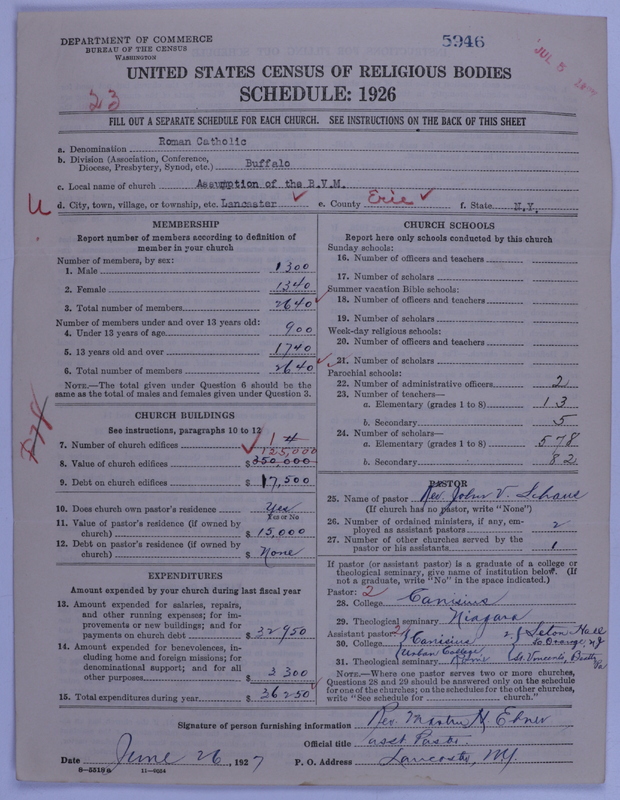 DEPARTMENT OF COMMERCE
BUREAU OF THE CENSUS
WASHINGTON
5946
JUL 5
UNITED STATES CENSUS OF RELIGIOUS BODIES
23
SCHEDULE: 1926
FILL OUT A SEPARATE SCHEDULE FOR EACH CHURCH. SEE INSTRUCTIONS ON THE BACK OF THIS SHEET
a. Denomination Roman Catholic
b. Division (Association, Conference,
Diocese, Presbytery, Synod, etc.) Buffalo
c. Local name of church Assumption of the B.V.M.
U d. City, town, village, or township, etc. Lancaster ✓ e. County Erie ✓ f. State N.Y.
MEMBERSHIP
Report number of members according to definition of
member in your church
Number of members, by sex:
1. Male 1300
2. Female 1340
3. Total number of members 2640 ✓
Number of members under and over 13 years old:
4. Under 13 years of age 900
5. 13 years old and over 1740
6. Total number of members 2640 ✓
NOTE.—The total given under Question 6 should be the
same as the total of males and females given under Question 3.
CHURCH BUILDINGS
See instructions, paragraphs 10 to 12
7. Number of church edifices 1 4
125,000
8. Value of church edifices $ 350,000
9. Debt on church edifices $ 17,500
10. Does church own pastor's residence Yes
Yes or No
11. Value of pastor's residence (if owned by
church) $ 15,000
12. Debt on pastor's residence (if owned by
church) $ None
EXPENDITURES
Amount expended by your church during last fiscal year
13. Amount expended for salaries, repairs,
and other running expenses; for im-
provements or new buildings; and for
payments on church debt $ 32950
14. Amount expended for benevolences, in-
cluding home and foreign missions; for
denominational support; and for all
other purposes $ 3300
15. Total expenditures during year $ 36250 ✓
CHURCH SCHOOLS
Report here only schools conducted by this church
Sunday schools:
16. Number of officers and teachers
17. Number of scholars
Summer vacation Bible schools:
18. Number of officers and teachers
19. Number of scholars
Week-day religious schools:
20. Number of officers and teachers
21. Number of scholars
Parochial schools:
22. Number of administrative officers 2
23. Number of teachers—
a. Elementary (grades 1 to 8) 13
b. Secondary 5
24. Number of scholars—
a. Elementary (grades 1 to 8) 578
b. Secondary 82
PASTOR
25. Name of pastor Rev. John V. Schaus
(If church has no pastor, write "None")
26. Number of ordained ministers, if any, em-
ployed as assistant pastors 2
27. Number of other churches served by the
pastor or his assistants 1
If pastor (or assistant pastor) is a graduate of a college or
theological seminary, give name of institution below. (If
not a graduate, write "No" in the space indicated.)
Pastor: 2
28. College Canisius
29. Theological seminary Niagara
Assistant pastor: 2
30. College Canisius 2. Seton Hall
So. Orange, N.J.
Urban College
31. Theological seminary Rome St. Vincents, Beatty
Pa
NOTE.—Where one pastor serves two or more churches,
Questions 28 and 29 should be answered only on the schedule
for one of the churches; on the schedules for the other churches,
write "See schedule for church."
Signature of person furnishing information Rev. Martin H Ebner
Official title asst Pastor
Date June 26, 1927 P. O. Address Lancaster, N.Y.
8-5519a 11-9654